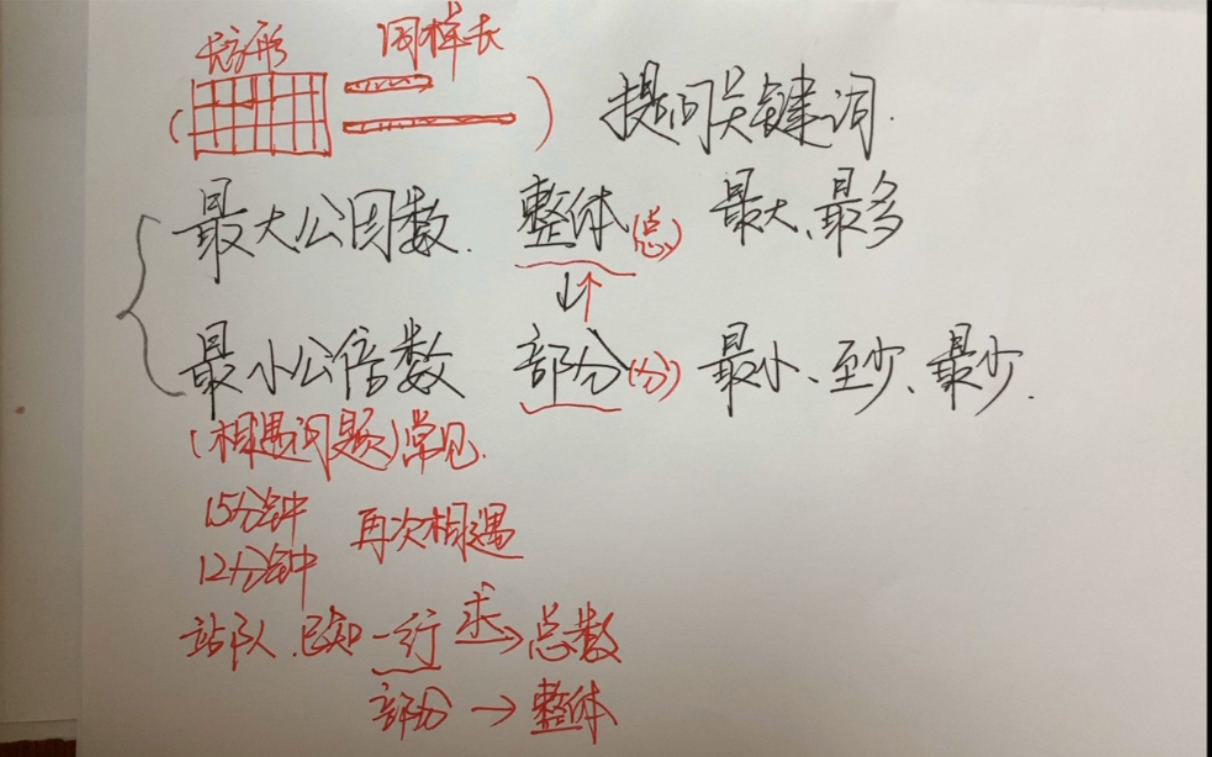 长方形 同样长
( ) 提问关键词.
最大公因数. 整体(总) 最大、最多
↓↑
最小公倍数 部分(分) 最小、至少、最少.
(相遇问题)常见.
15分钟
再次相遇
12分钟
站队.已知一行 求→ 总数
部分 → 整体